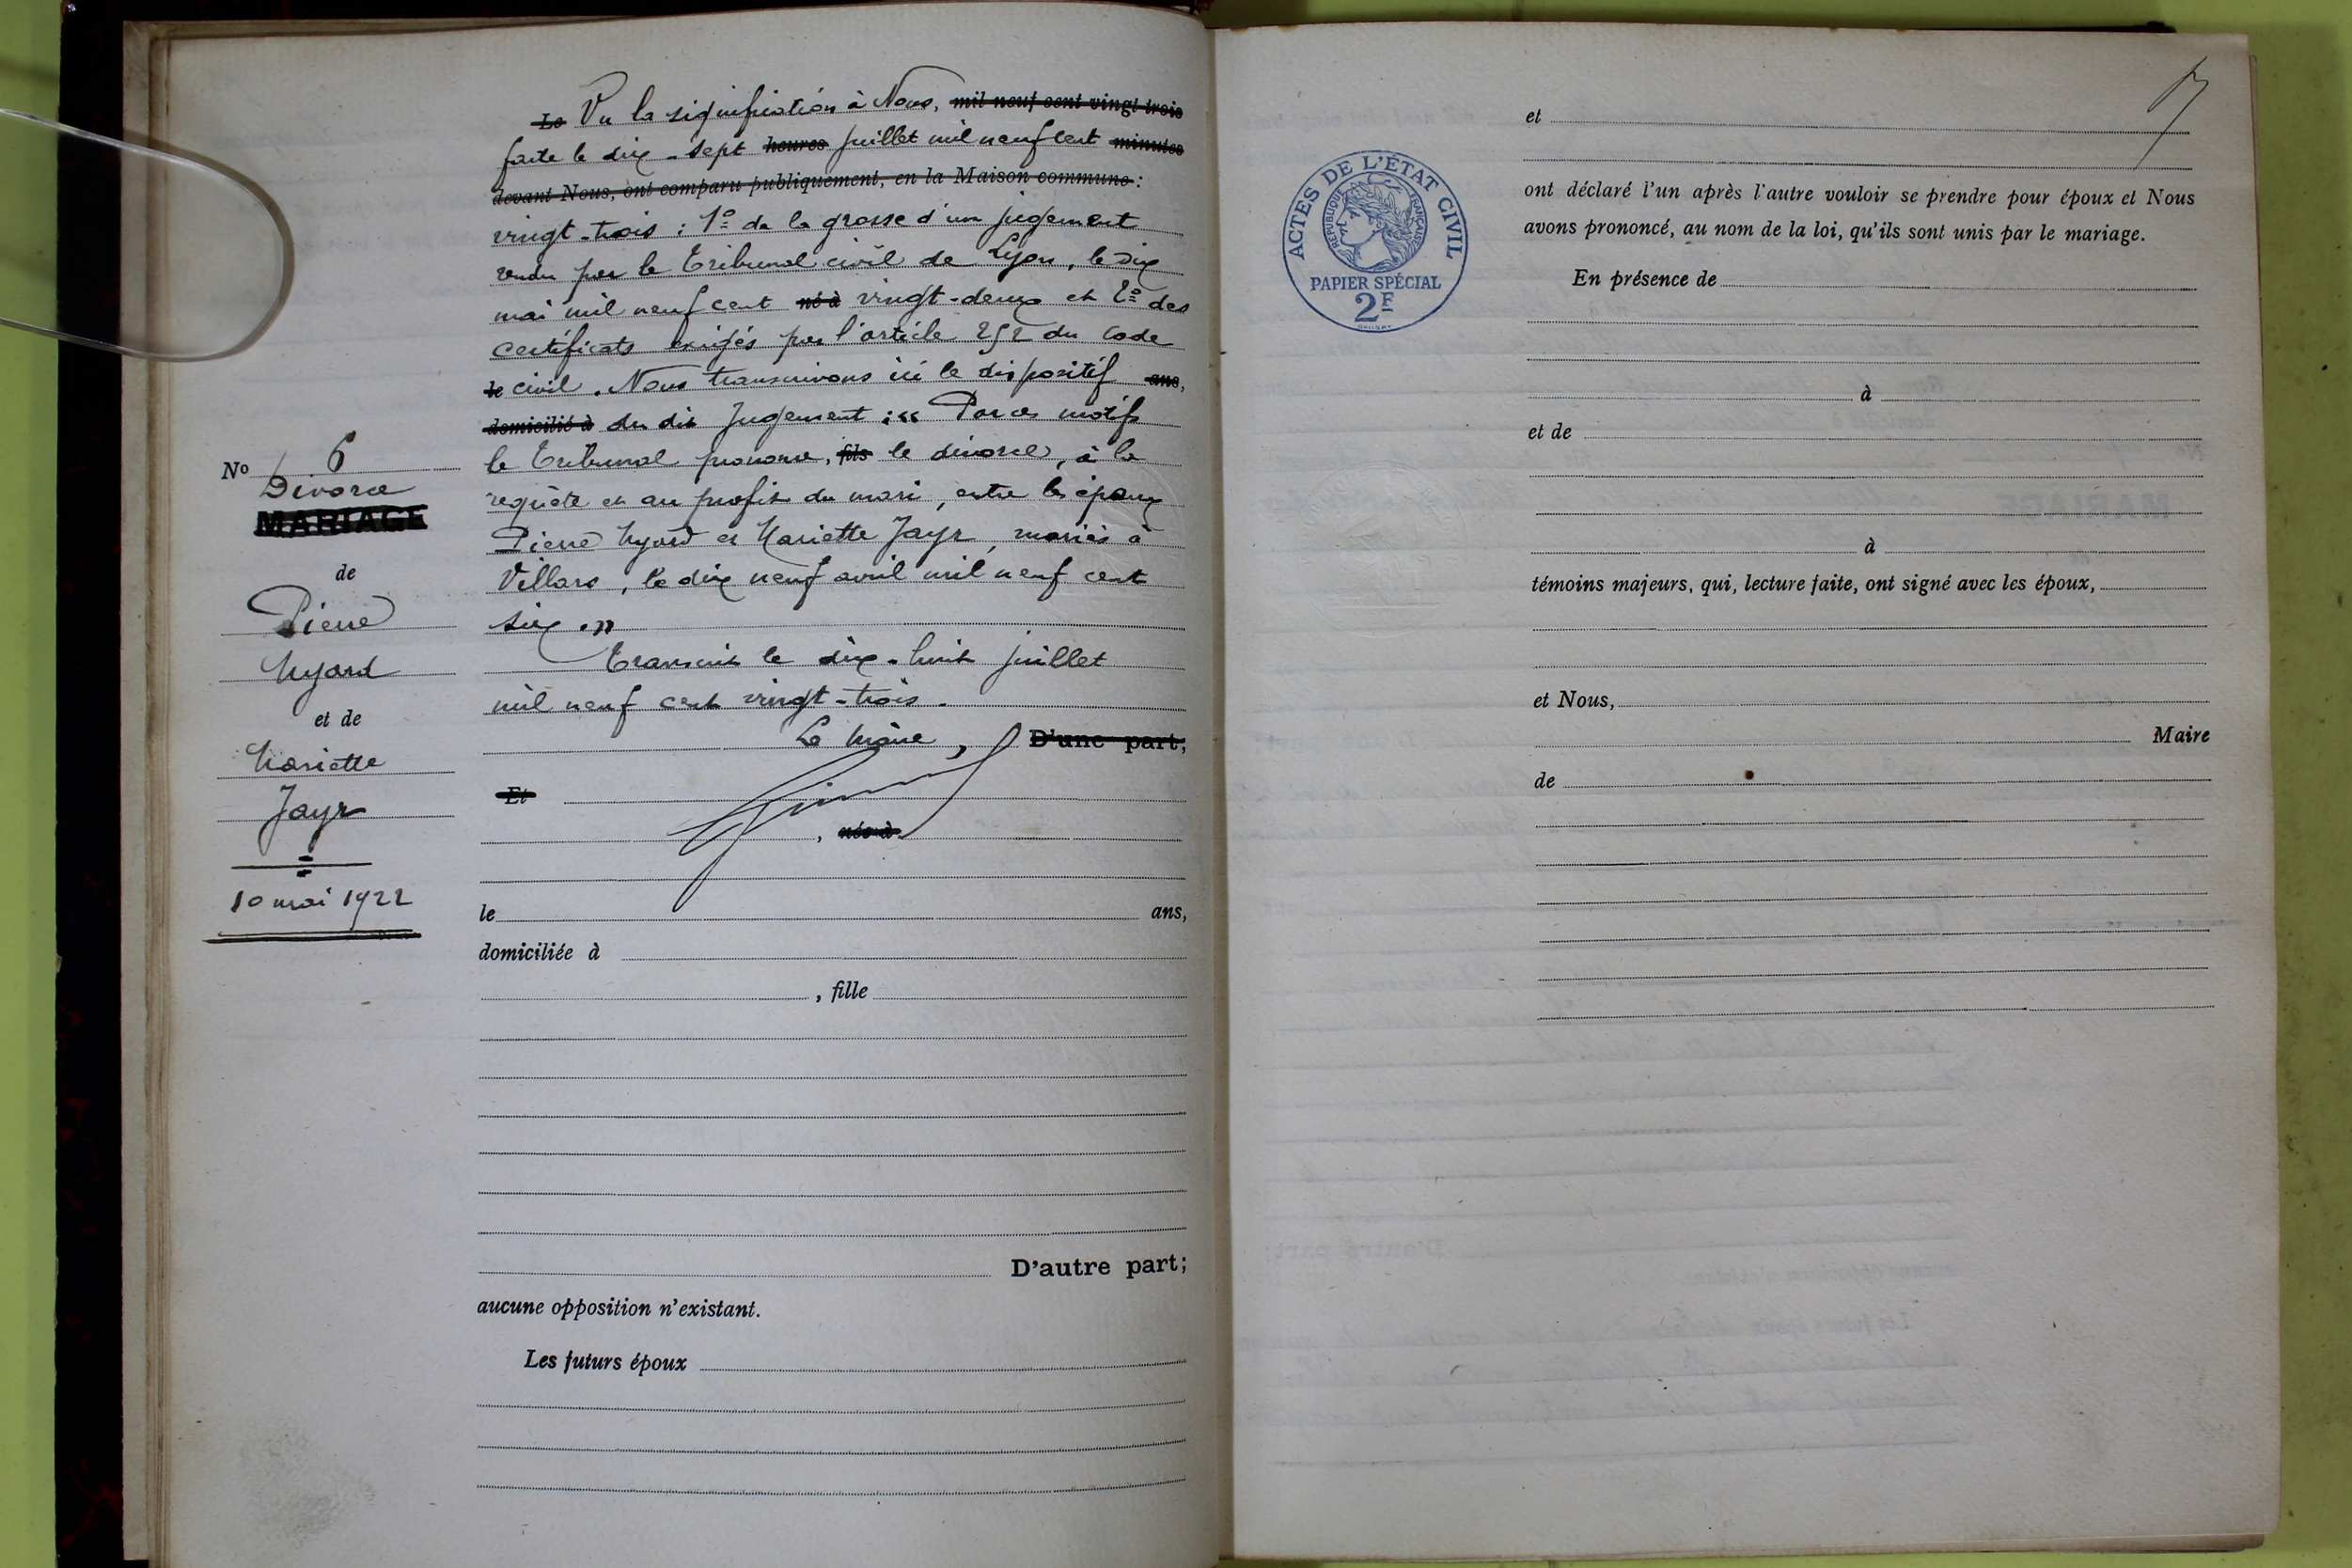 Le Vu la signification à Nous, mil neuf cent vingt trois
faite le dix-sept heures juillet mil neuf cent minutes
devant Nous, ont comparu publiquement, en la Maison commune :
vingt-trois : 1º de la grosse d'un jugement
rendu par le Tribunal civil de Lyon, le dix
mai mil neuf cent né à vingt-deux et 2º des
certificats exigés par l'article 252 du Code
le civil. Nous transcrivons ici le dispositif ans,
domicilié à du dit Jugement : « Par ces motifs
le Tribunal prononce, fils le divorce, à la
requête et au profit du mari, entre les époux
Pierre Myard et Mariette Jayr, mariés à
Villars, le dix neuf avril mil neuf cent
six. »
Transcrit le dix-huit juillet
mil neuf cent vingt-trois.
Le Maire, D'une part;
Et
, née à
le ans,
domiciliée à
, fille
D'autre part;
aucune opposition n'existant.
Les futurs époux
Nº 6
Divorce
MARIAGE
de
Pierre
Myard
et de
Mariette
Jayr
10 mai 1922
et
ont déclaré l'un après l'autre vouloir se prendre pour époux et Nous
avons prononcé, au nom de la loi, qu'ils sont unis par le mariage.
En présence de
à
et de
à
témoins majeurs, qui, lecture faite, ont signé avec les époux,
et Nous,
Maire
de
ACTES DE L'ÉTAT CIVIL
RÉPUBLIQUE FRANÇAISE
PAPIER SPÉCIAL
2F